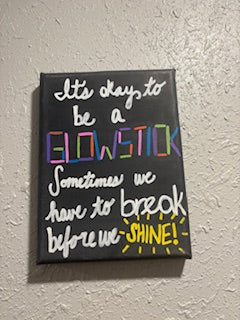 It's okay to
be a
GLOWSTICK
Sometimes we
have to break
before we SHINE!